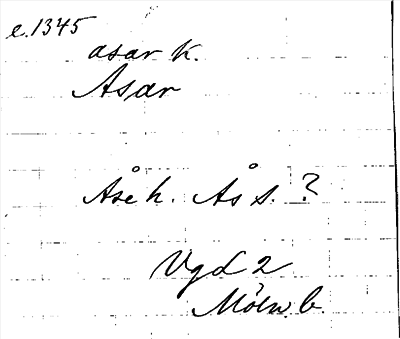 e. 1345
asar k.
Asar
Åse h. Ås s. ?
Vgd 2
b.